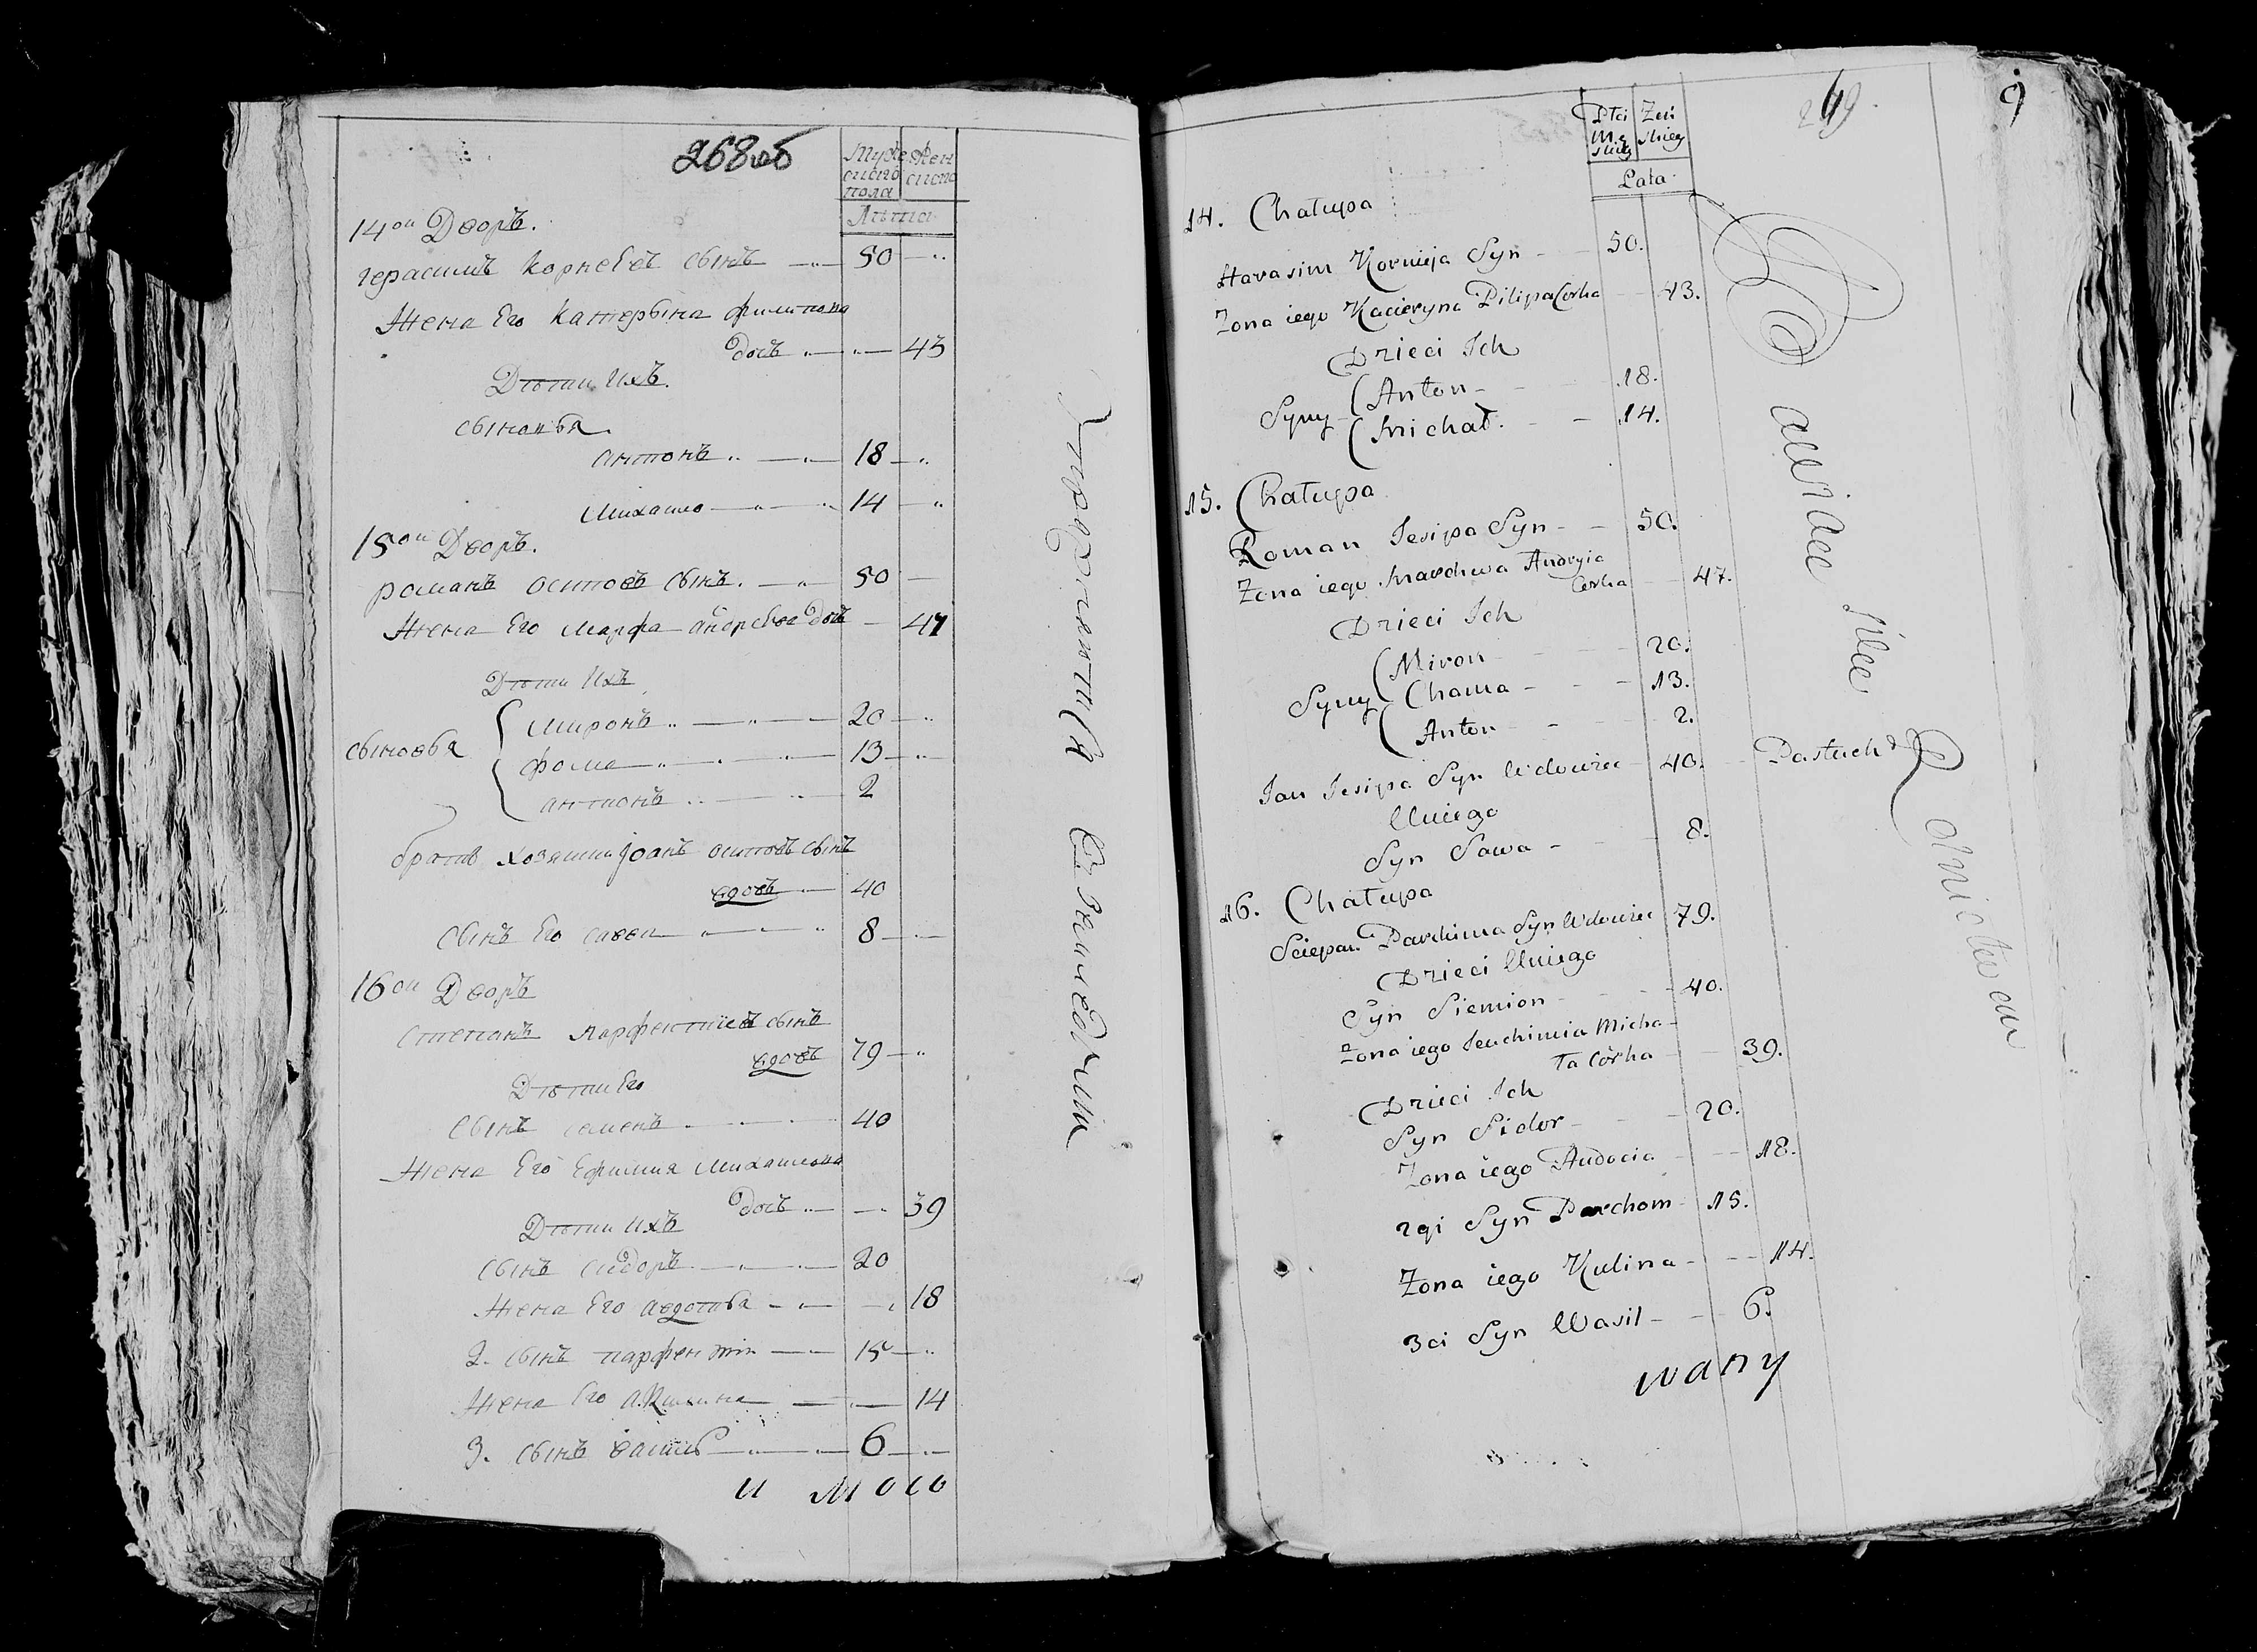 268об
Мужескаго пола
Женскаго
Лѣта
14ои Дворъ.
герасимъ Корнеевъ сынъ 50
Жена Его Катерына филипова
дочь 43
Дѣти ихъ
сыновья
антонъ 18
Михайло 14
15ои Дворъ.
романъ осиповъ сынъ. 50
Жена Его марфа андреева дочь 47
Дѣти Ихъ
сыновья
миронъ 20
фома 13
антонъ 2
братъ хозяина Іоанъ осиповъ сынъ
вдовъ 40
сынъ Его савва 8
16ои Дворъ
степанъ парфентиевъ сынъ
вдовъ 79
Дѣти Его
сынъ семенъ 40
Жена Его Ефимия михаилова
дочь 39
Дѣти ихъ
сынъ сидоръ 20
Жена Его авдотья 18
2. сынъ парфентий 15
Жена Его Акилина 14
3. сынъ василь 6
Płci Męskiey
Żeńskiey
Lata
269
9
14. Chałupa
Harasim Kornieja Syn 50.
Zona iego Kacieryna Pilipa Corka 43.
Dzieci Ich
Syny
Anton 18.
Michał 14.
15. Chałupa
Roman Iesipa Syn 50.
Zona iego Marchwa Andryia
Corka 47.
Dzieci Ich
Syny
Miron 20.
Choma 13.
Anton 2.
Jan Iesipa Syn Wdowiec 40. Pastuch
Uniego
Syn Sawa 8.
16. Chałupa
Sciepan Parchima Syn Wdowiec 79.
Dzieci Uniego
Syn Siemion 40.
Zona iego Jeuchimia Micha-
ła Córka 39.
Dzieci Ich
Syn Sidor 20.
Zona iego Audocia 18.
2gi Syn Parchom 15.
Zona iego Kulina 14.
3ci Syn Wasil 6.
wany